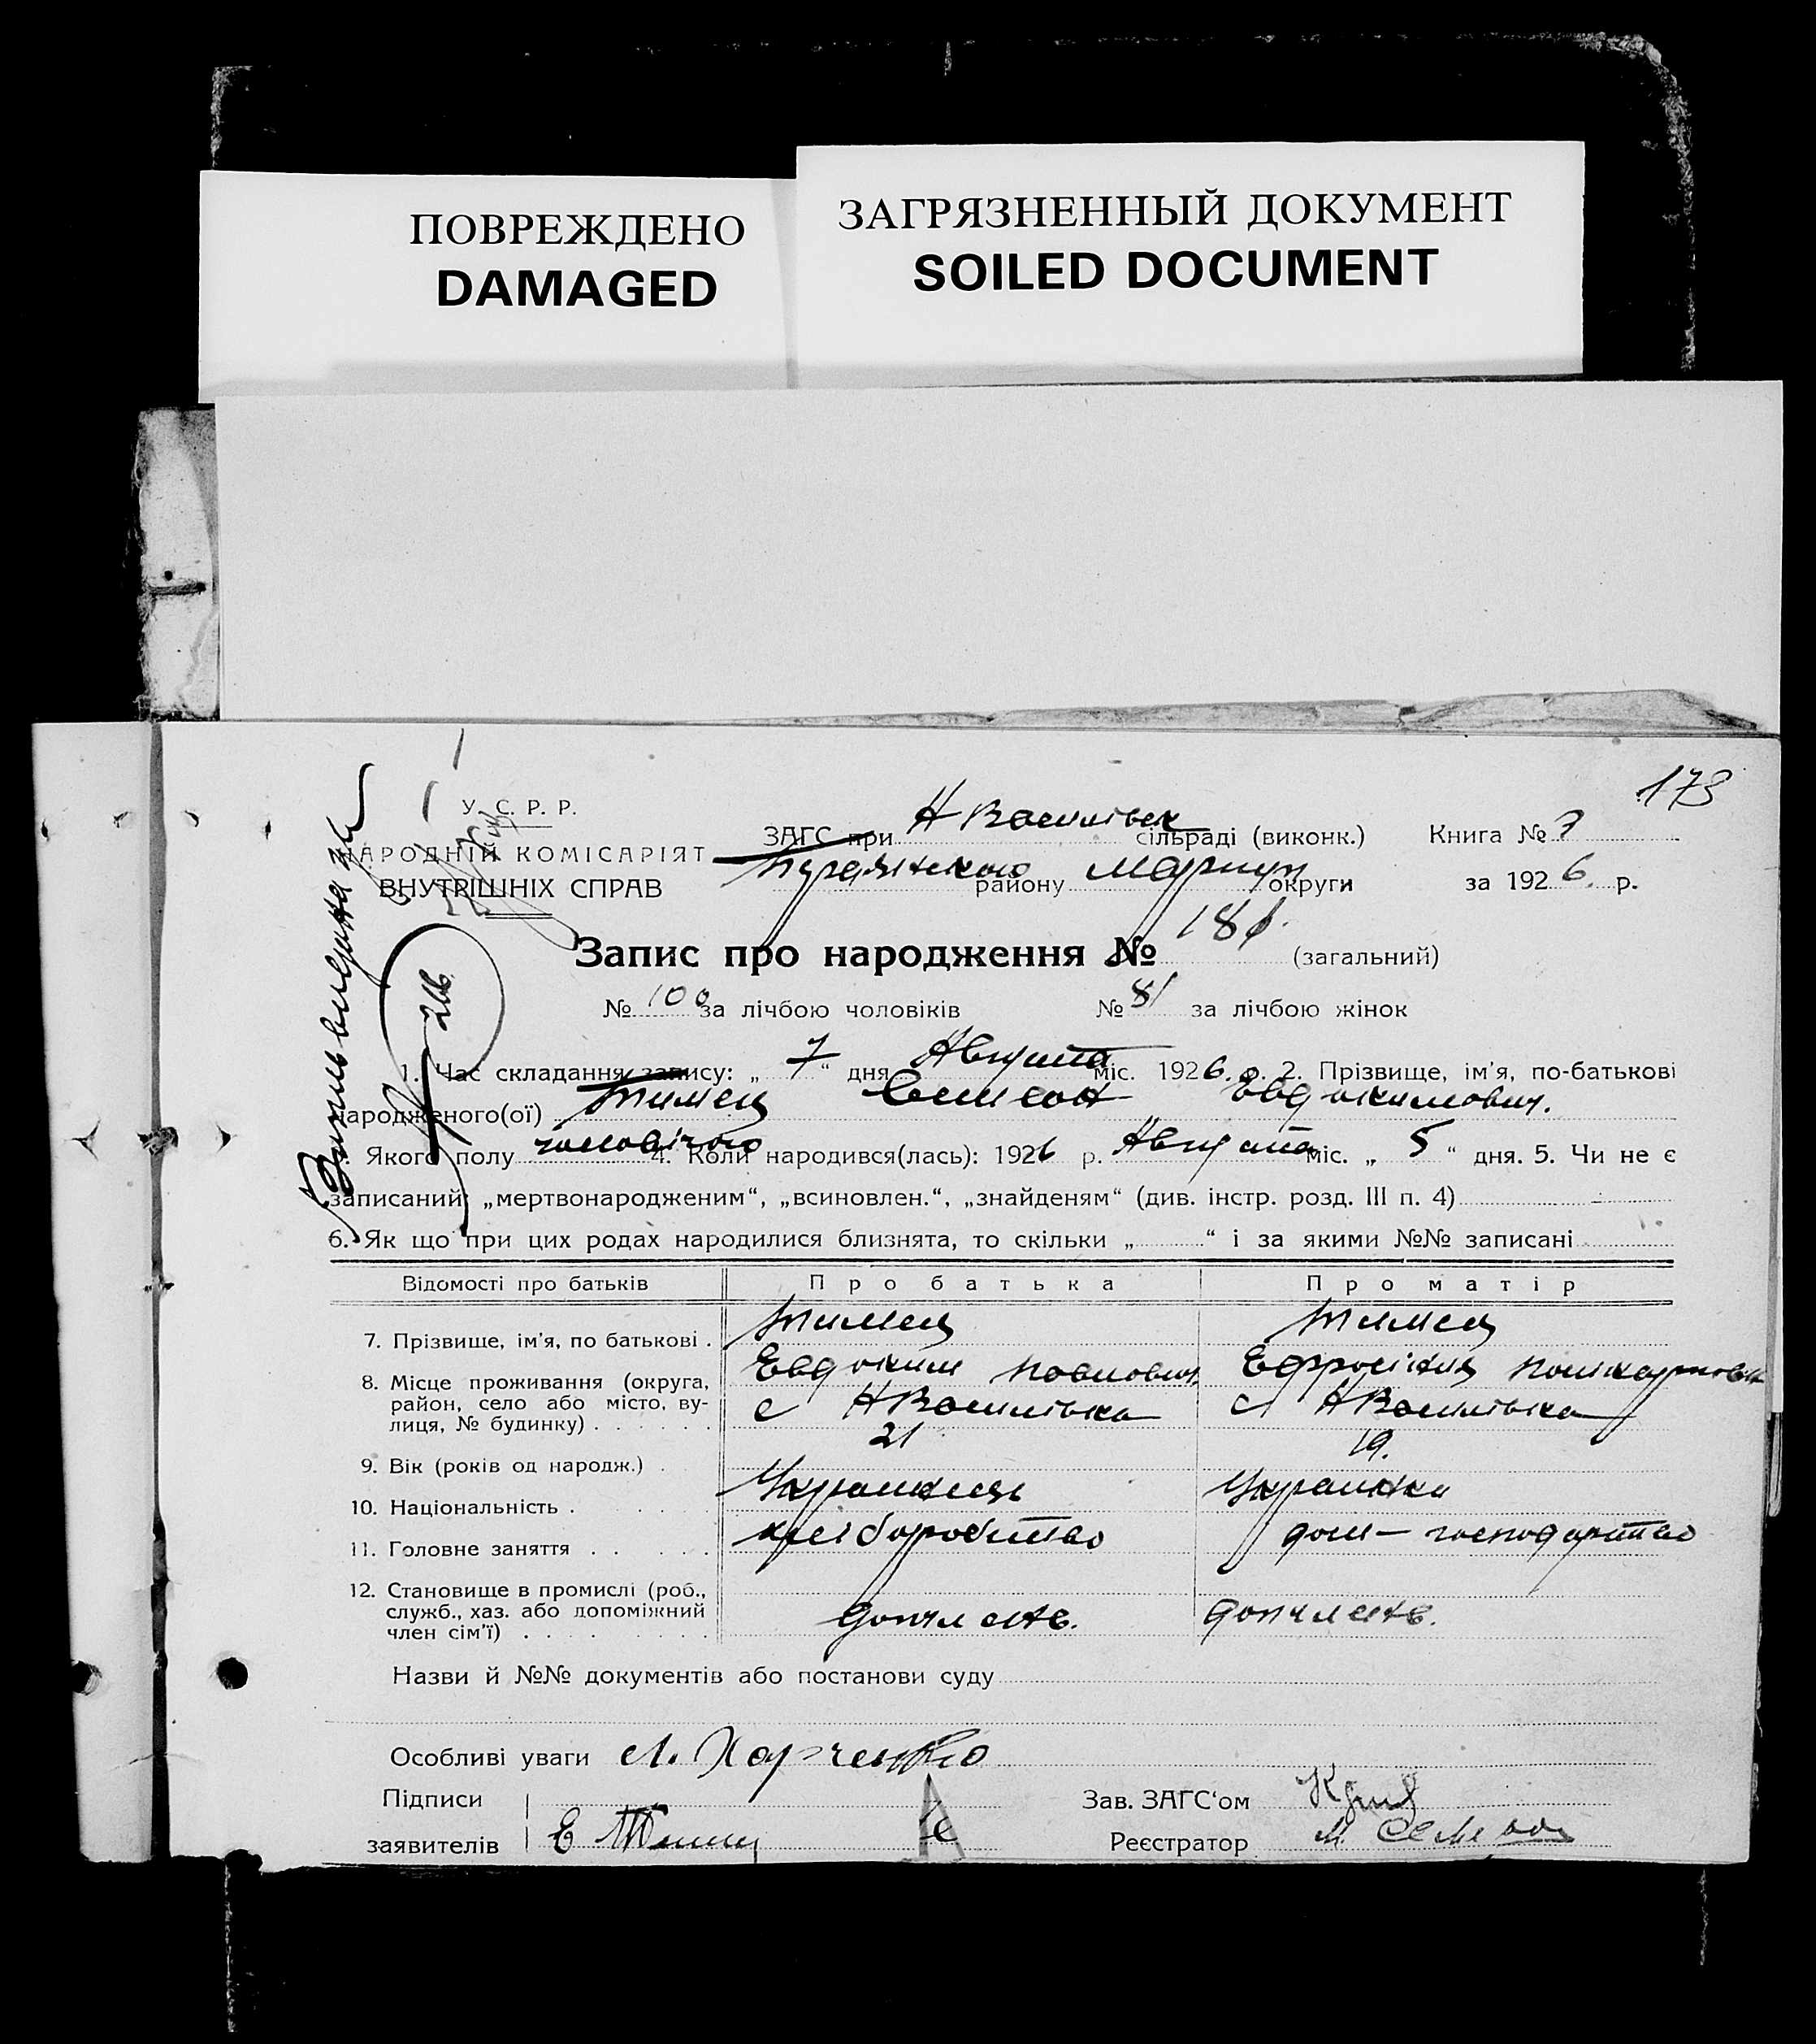 ПОВРЕЖДЕНО
DAMAGED
ЗАГРЯЗНЕННЫЙ ДОКУМЕНТ
SOILED DOCUMENT
173
У. С. Р. Р.
НАРОДНІЙ КОМІСАРІЯТ
ВНУТРІШНІХ СПРАВ
ЗАГС при Н Васильевск сільраді (виконк.) Книга №
району Мариуп округи за 1926 р.
Запис про народження № 181 (загальний)
№ 100 за лічбою чоловіків № 81 за лічбою жінок
1. Час складання запису: „ 7 “ дня Августа міс. 1926 р. 2. Прізвище, ім’я, по-батькові
народженого(ої) Тимец Семен Евдокимович.
Якого полу чоловічого 4. Коли народився(лась): 1926 р. Августа міс. „ 5 “ дня. 5. Чи не є
записаний: „мертвонародженим“, „всиновлен.“, „знайденям“ (див. інстр. розд. III п. 4)
6. Як що при цих родах народилися близнята, то скільки „ “ і за якими №№ записані
Відомості про батьків Про батька Про матір
7. Прізвище, ім’я, по батькові . Тимец Тимец
Евдоким Павлович Ефросінія
8. Місце проживання (округа, район, село або місто, вулиця, № будинку) . с Н Василівка с Н Василівка
9. Вік (років од народж.) . 21 19.
10. Національність . Українець Українка
11. Головне заняття . хліборобство дом – господарство
12. Становище в промислі (роб., служб., хаз. або допоміжний член сім’ї) .
Назви й №№ документів або постанови суду
Особливі уваги Л. Харченко
Підписи
заявителів Е Тимец
Зав. ЗАГС‘ом
Реєстратор М.